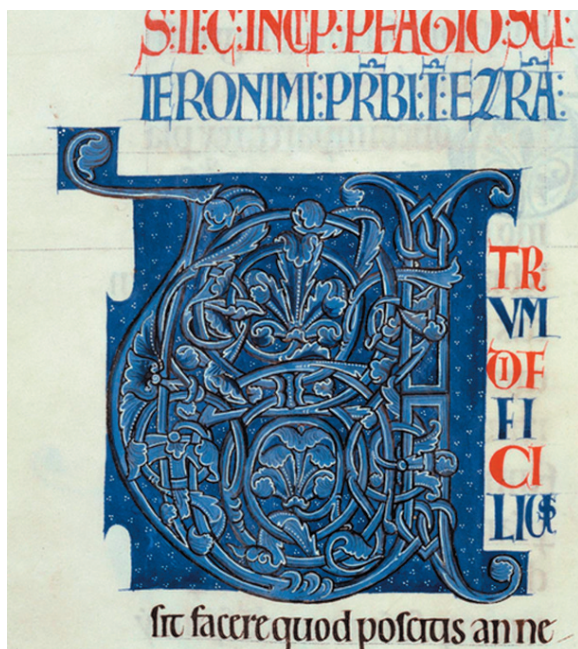 S·II·C·INCIP·PFAGIO·SCI·
IERONIMI:PRBI:I:EZRA:
U
TR
VM
DIF
FI
CI
LIUS
sit facere quod poscitis an ne